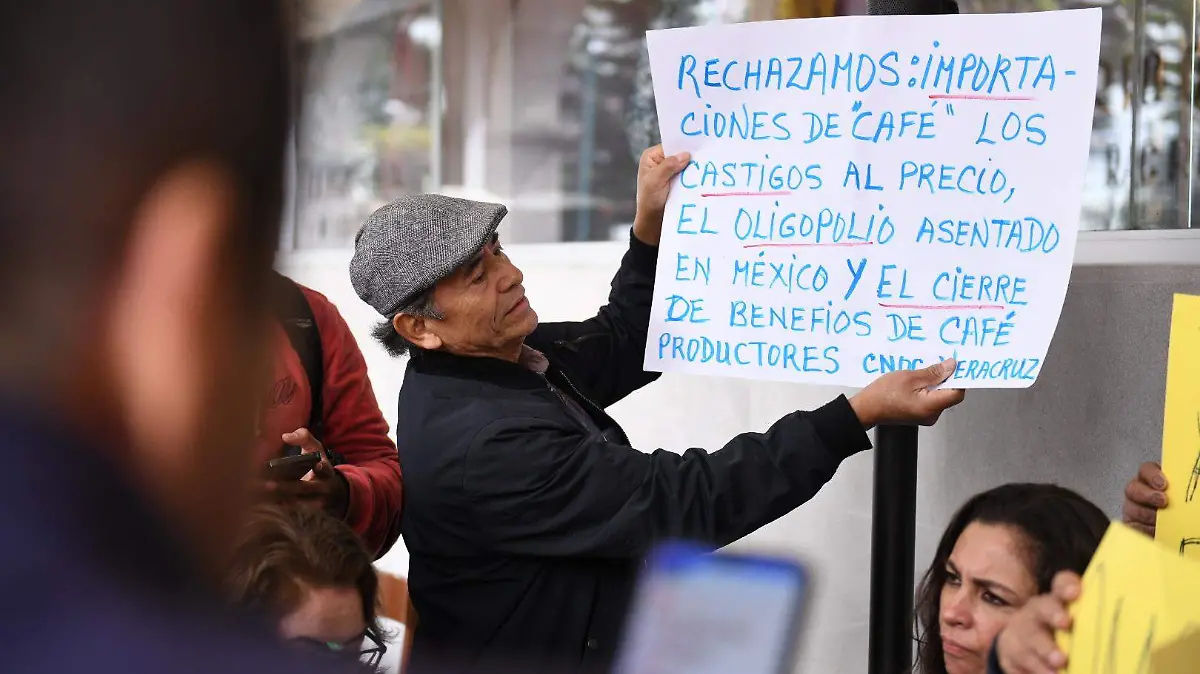 RECHAZAMOS: IMPORTA-
CIONES DE "CAFÉ" LOS
CASTIGOS AL PRECIO,
EL OLIGOPOLIO ASENTADO
EN MÉXICO Y EL CIERRE
DE BENEFIOS DE CAFÉ
PRODUCTORES VERACRUZ